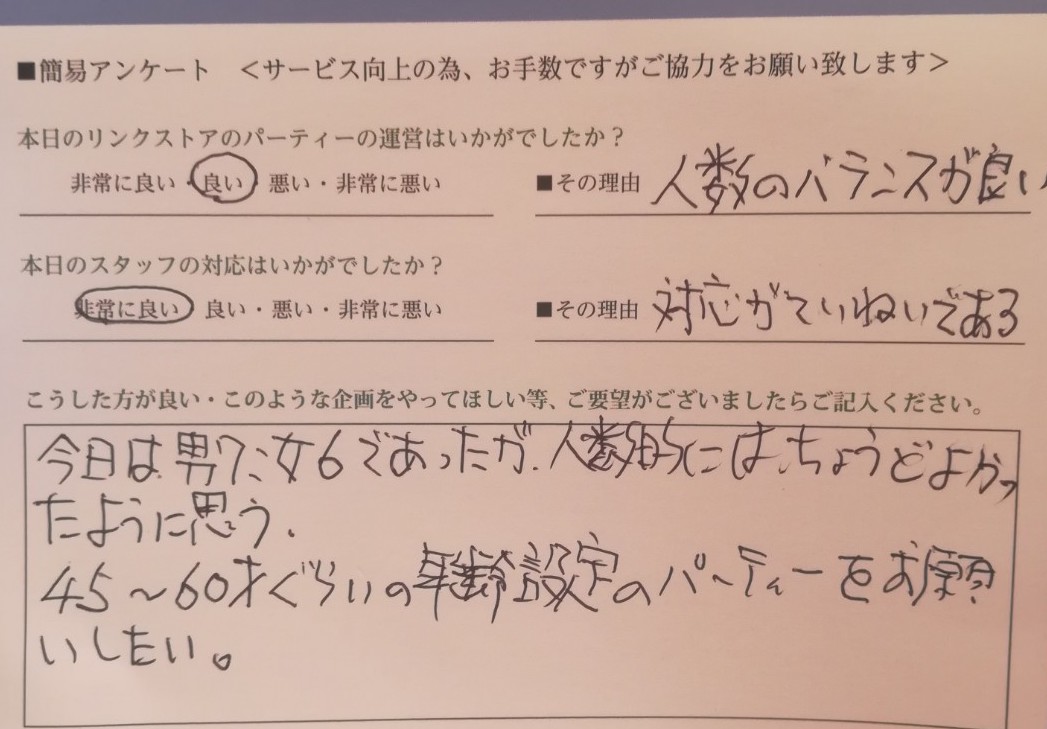 ■簡易アンケート <サービス向上の為、お手数ですがご協力をお願い致します>
本日のリンクストアのパーティーの運営はいかがでしたか?
非常に良い・良い・悪い・非常に悪い ■その理由 人数のバランスが良い
本日のスタッフの対応はいかがでしたか?
非常に良い 良い・悪い・非常に悪い ■その理由 対応がていねいである
こうした方が良い・このような企画をやってほしい等、ご要望がございましたらご記入ください。
今日は、男7:女6であったが、人数的には、ちょうどよかっ
たように思う.
45~60才ぐらいの年齢設定のパーティーをお願
いしたい。